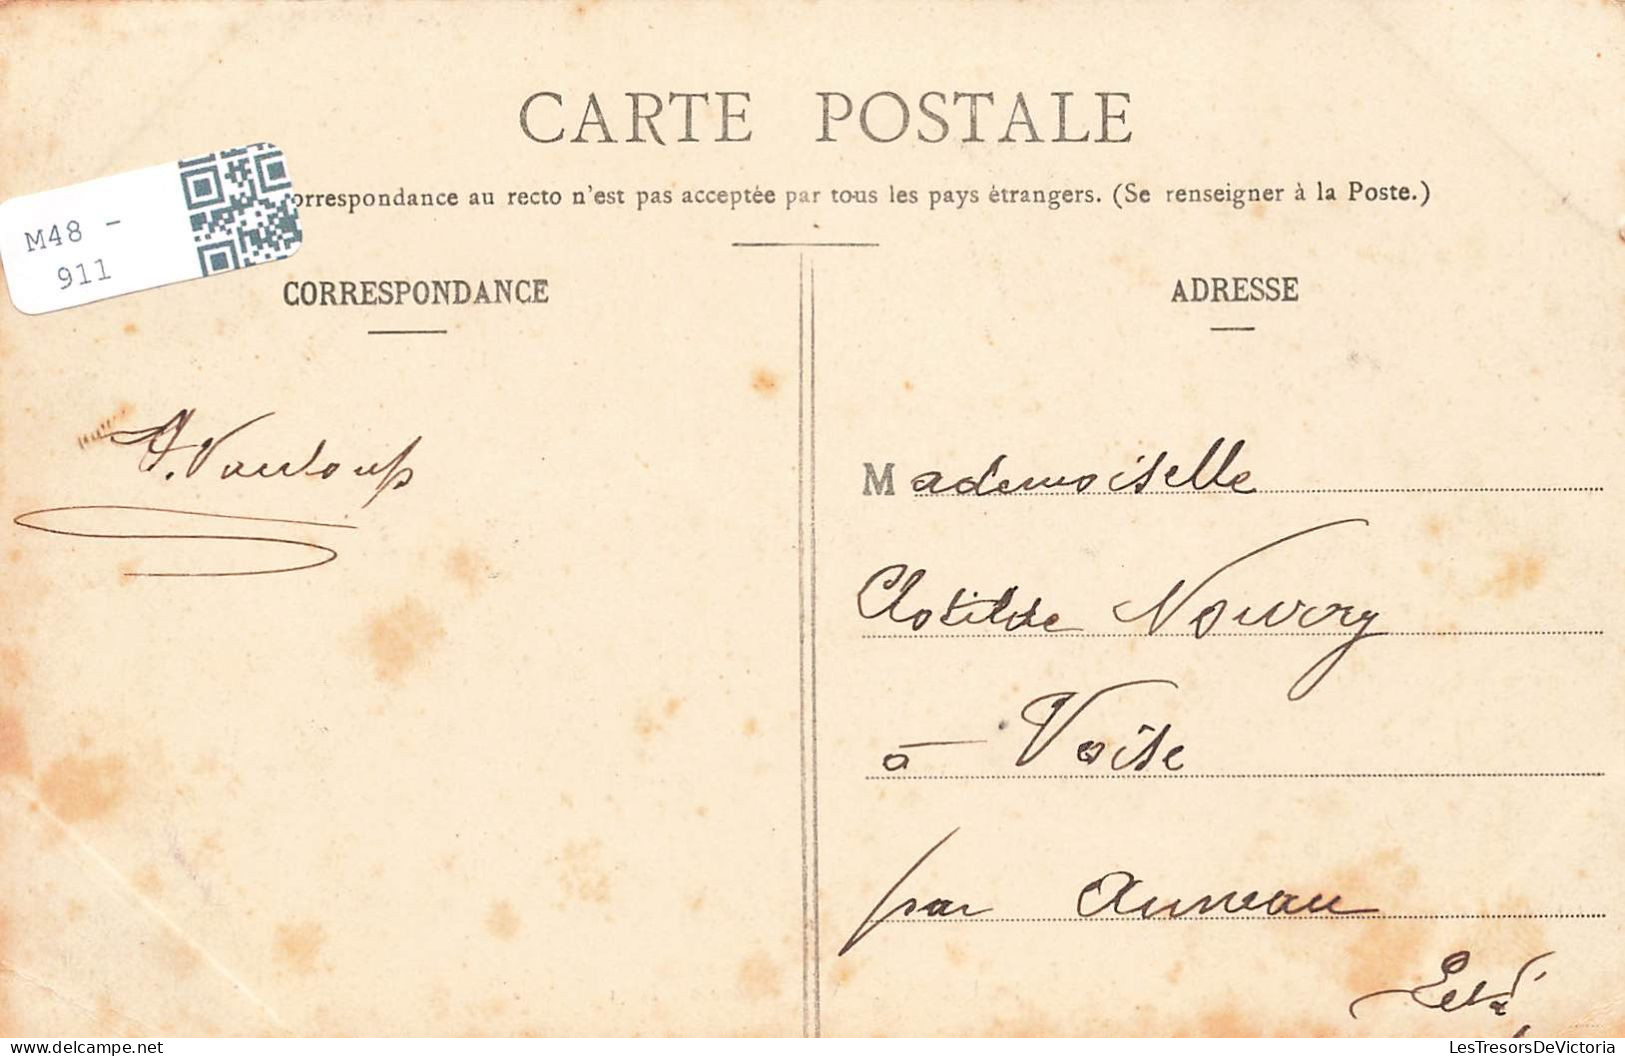 CARTE POSTALE
orrespondance au recto n'est pas acceptée par tous les pays étrangers. (Se renseigner à la Poste.)
M48 -
911
CORRESPONDANCE
ADRESSE
Mademoiselle
Clotilde Nourry
à Voise
par Auneau
LesTresorsDeVictoria